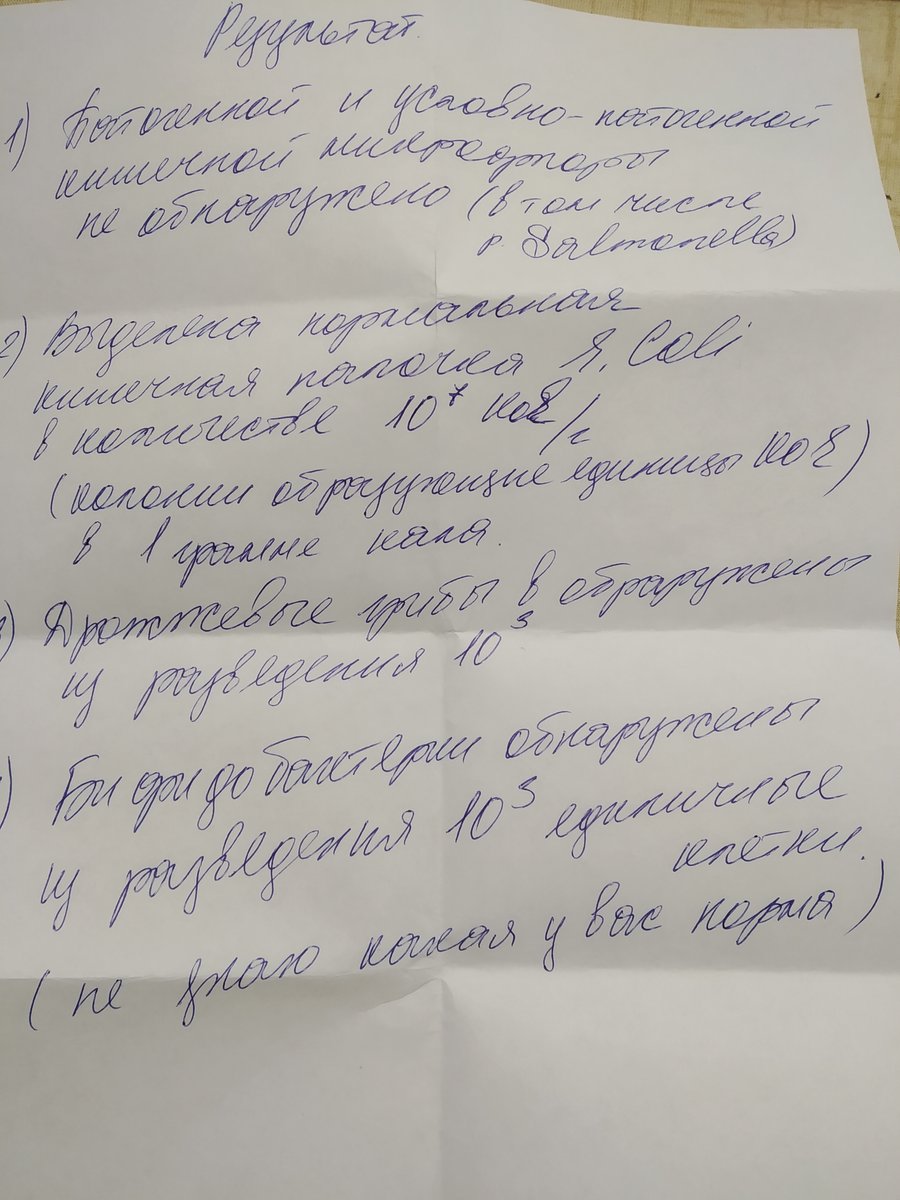 Результат.
1) Патогенной и условно-патогенной
кишечной микрофлоры
не обнаружено (в том числе
р. Salmonella)
2) Выделена нормальная
кишечная палочка E. Coli
в количестве 10⁷ КОЕ/г
(колонии образующие единицы КОЕ)
в 1 грамме кала.
) Дрожжевые грибы в обраружены
из разведения 10³
) Бифидобактерии обнаружены
из разведения 10³ единичные
клетки.
(не знаю какая у вас норма)